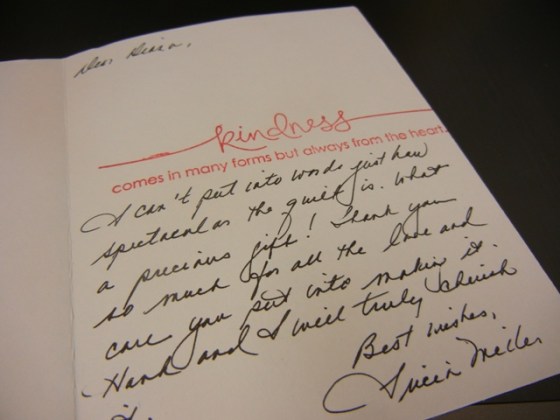 Dear
kindness
comes in many forms but always from the heart.
I can't put into words just how
spectacular the quilt is. What
a precious gift! Thank you
so much for all the love and
care you put into makin it.
Hank and I will truly cherish
it.
Best wishes,
Miller